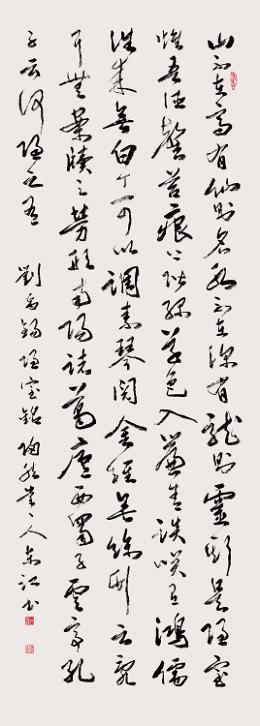 山不在高有仙則名水不在深有龍則靈斯是陋室
惟吾德馨苔痕上階綠草色入簾青談笑有鴻儒
往來無白丁可以調素琴閱金經無絲竹之亂
耳無案牘之勞形南陽諸葛廬西蜀子雲亭孔
子云何陋之有 劉禹錫陋室銘 人東江書